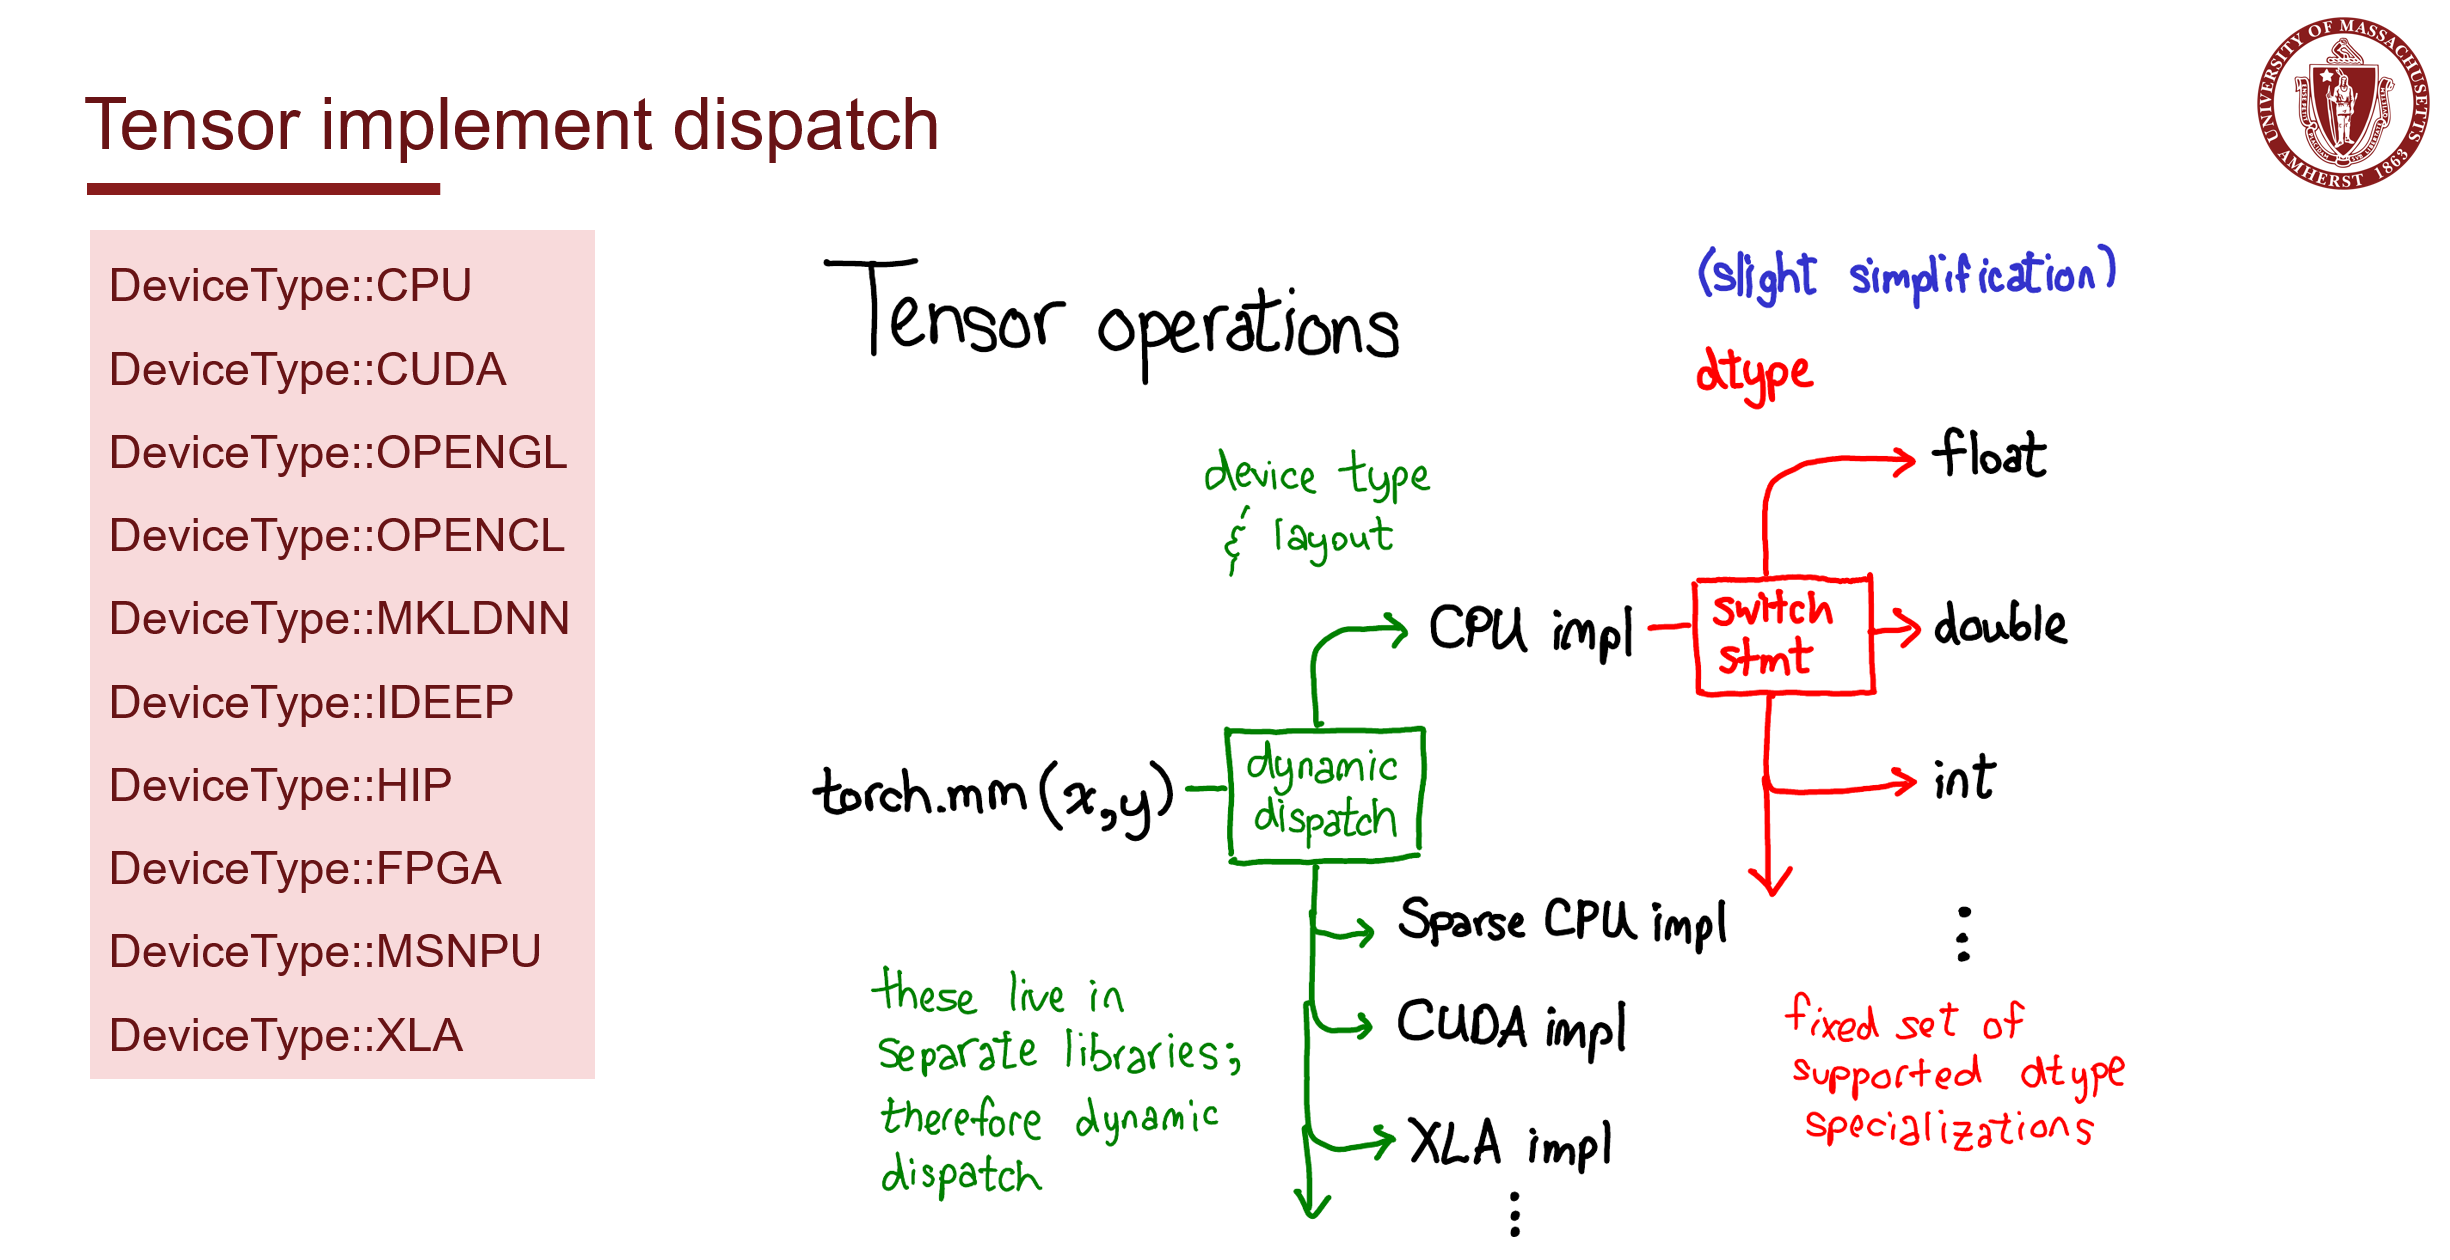 Tensor implement dispatch
UNIVERSITY OF MASSACHUSETTS
AMHERST 1863
DeviceType::CPU
DeviceType::CUDA
DeviceType::OPENGL
DeviceType::OPENCL
DeviceType::MKLDNN
DeviceType::IDEEP
DeviceType::HIP
DeviceType::FPGA
DeviceType::MSNPU
DeviceType::XLA
Tensor operations
(slight simplification)
dtype
device type
& layout
float
CPU impl
switch
stmt
double
torch.mm(x,y)
dynamic
dispatch
int
Sparse CPU impl
CUDA impl
XLA impl
⋮
⋮
these live in
separate libraries;
therefore dynamic
dispatch
fixed set of
supported dtype
specializations